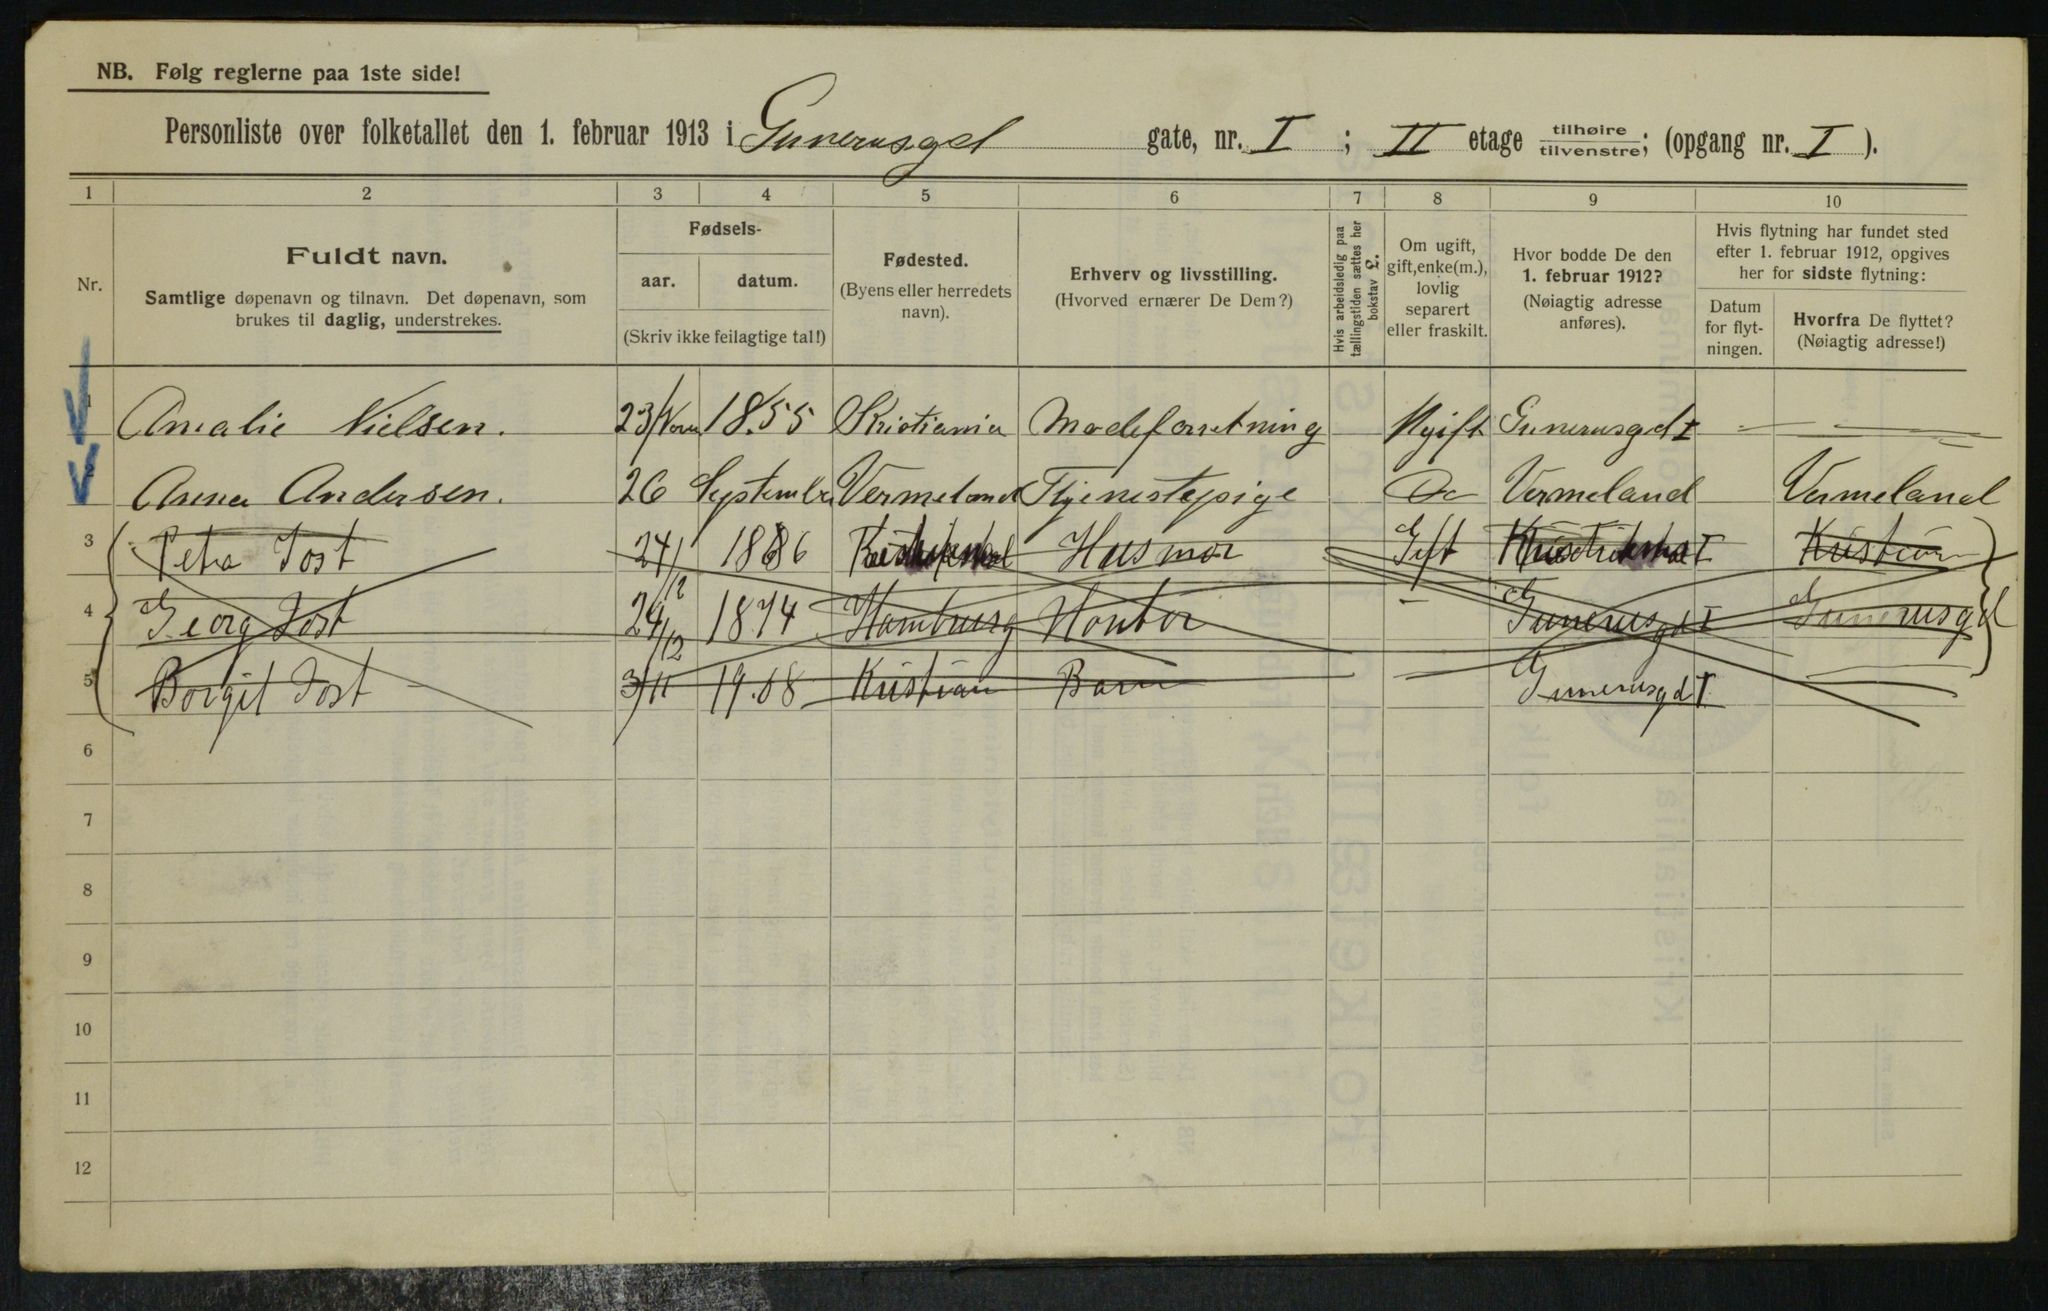 NB. Følg reglerne paa 1ste side!
Personliste over folketallet den 1. februar 1913 i Gunerusgd gate, nr. I ; II etage tilhøire tilvenstre; (opgang nr. I ).
1 2 3 4 5 6 7 8 9 10
Nr.
Fuldt navn.
Samtlige døpenavn og tilnavn. Det døpenavn, som
brukes til daglig, understrekes.
Fødsels-
aar. datum.
(Skriv ikke feilagtige tal!)
Fødested.
(Byens eller herredets
navn).
Erhverv og livsstilling.
(Hvorved ernærer De Dem?)
Hvis arbeidsledig paa
tællingstiden sættes her
bokstav L.
Om ugift,
gift, enke(m.),
lovlig
separert
eller fraskilt.
Hvor bodde De den
1. februar 1912?
(Nøiagtig adresse
anføres).
Hvis flytning har fundet sted
efter 1. februar 1912, opgives
her for sidste flytning:
Datum
for flyt-
ningen.
Hvorfra De flyttet?
(Nøiagtig adresse!)
1 Amalie Nielsen. 23/ 1855 Kristiania Modeforretning Ugift Gunerusgd I — —
2 Anna Andersen. 26 September Vermeland Tjenestepige Do Vermeland Vermeland
3 Petra Jost 24/12 1886 Husmor Gift I Kristian
4 Georg Jost 24/12 1874 Hamburg Kontor — Gunerusgd I Gunerusgd
5 Borgit Jost 3/11 19.08 Kristian Barn — Gunerusgd I
6
7
8
9
10
11
12